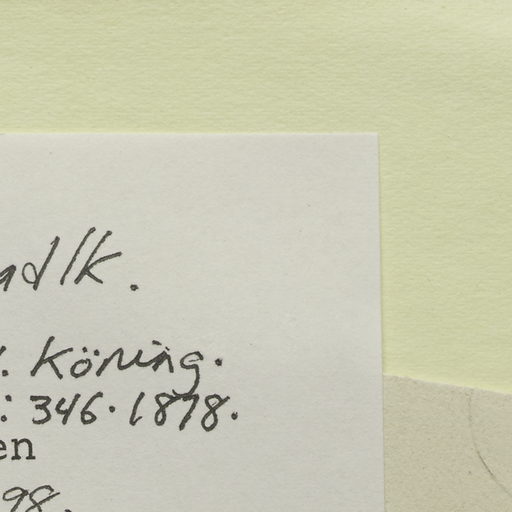 adlk.
. Köning.
: 346. 1878.
en
98.